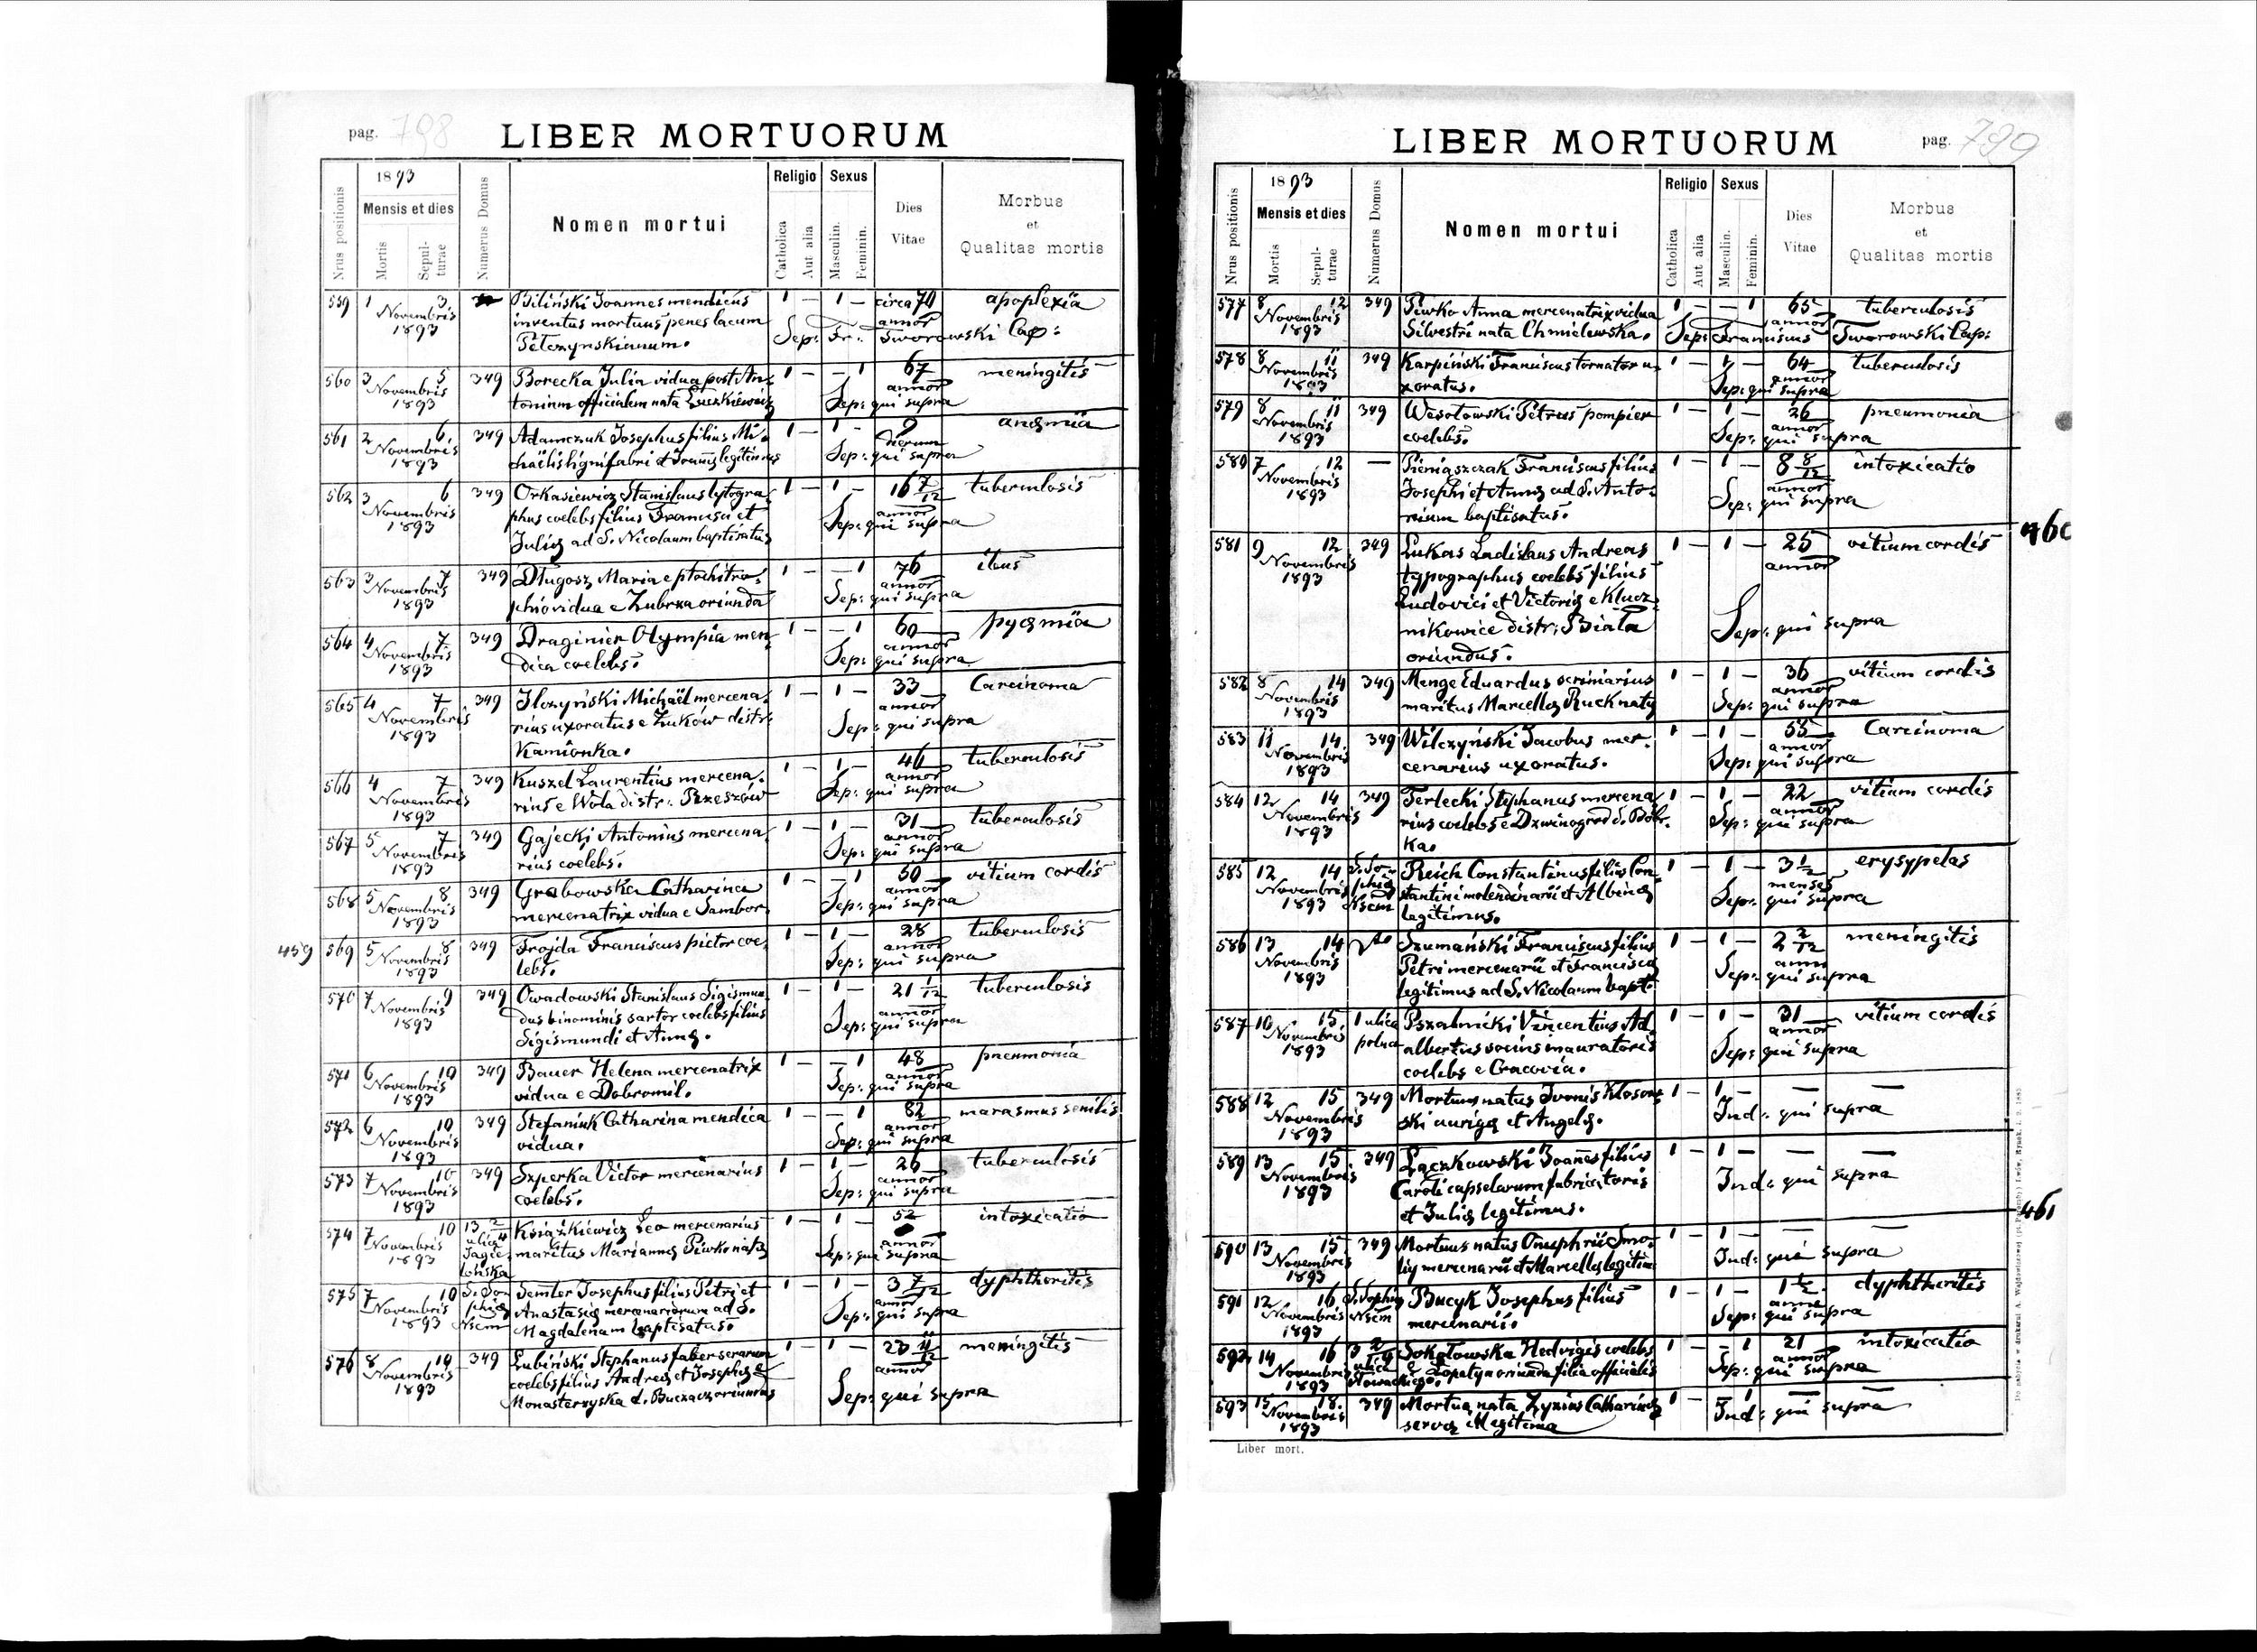 pag. 798
LIBER MORTUORUM
Nrus positionis
1893
Mensis et dies
Mortis
Sepulturae
Numerus Domus
Nomen mortui
Religio
Catholica
Aut alia
Sexus
Masculin.
Feminin.
Dies
Vitae
Morbus
et
Qualitas mortis
559 1 3 Biliński Joannes mendicus 1 — 1 — circa 70 apoplexia
Novembris inventus mortuus penes lacum annor
1893 Pełczynskianum. Sep: Fr. Tworowski Cap:
560 3 5 349 Borecka Julia vidua post An- 1 — — 1 67 meningitis
Novembris toninum officialem nata Łuczkiewicz annor
1893 Sep: qui supra
561 2 6 349 Adamczuk Josephus filius Mi- 1 — 1 — 9 anæmia
Novembris chaëlis lignifabri et Joannæ legitimus dierum
1893 Sep: qui supra
562 3 6 349 Orkasiewicz Stanislaus lytogra- 1 — 1 — 16 7/12 tuberculosis
Novembris phus coelebs filius Francisci et annor
1893 Juliæ ad S. Nicolaum baptisatus Sep: qui supra
563 3 7 349 Długosz Maria e ptochitro- 1 — — 1 76 ileus
Novembris phio vidua e Zubrza oriunda annor
1893 Sep: qui supra
564 4 7 349 Draginier Olympia men- 1 — — 1 60 pyæmia
Novembris dica coelebs. annor
1893 Sep: qui supra
565 4 7 349 Ilczyński Michaël mercena- 1 — 1 — 33 Carcinoma
Novembris rius uxoratus e Żuków distr: annor
1893 Kamionka. Sep: qui supra
566 4 7 349 Kuszel Laurentius mercena- 1 — 1 — 46 tuberculosis
Novembris rius e Wola distr: Rzeszów annor
1893 Sep: qui supra
567 5 7 349 Gajecki Antonius mercena- 1 — 1 — 31 tuberculosis
Novembris rius coelebs. annor
1893 Sep: qui supra
568 5 8 349 Grabowska Catharina 1 — — 1 50 vitium cordis
Novembris mercenatrix vidua e Sambor. annor
1893 Sep: qui supra
459 569 5 8 349 Frojda Franciscus pictor coe- 1 — 1 — 28 tuberculosis
Novembris lebs. annor
1893 Sep: qui supra
570 7 9 349 Owadowski Stanislaus Sigismun- 1 — 1 — 21 1/12 tuberculosis
Novembris dus binominis sartor coelebs filius annor
1893 Sigismundi et Annæ. Sep: qui supra
571 6 10 349 Bauer Helena mercenatrix 1 — — 1 48 pneumonia
Novembris vidua e Dobromil. annor
1893 Sep: qui supra
572 6 10 349 Stefaniuk Catharina mendica 1 — — 1 82 marasmus senilis
Novembris vidua. annor
1893 Sep: qui supra
573 7 10 349 Szperka Victor mercenarius 1 — 1 — 26 tuberculosis
Novembris coelebs. annor
1893 Sep: qui supra
574 7 10 13 2/4 Książkiewicz Leo mercenarius 1 — 1 — 52 intoxicatio
Novembris ulica Jagielońska maritus Mariannæ Piwko natæ annor
1893 Sep: qui supra
575 7 10 S. Sophiæ Nsem Semler Josephus filius Petri et 1 — 1 — 3 7/12 dyphtheritis
Novembris Anastasiæ mercenariorum ad S. annor
1893 Magdalenam baptisatus. Sep: qui supra
576 8 10 349 Łubiński Stephanus faber serarum 1 — 1 — 20 11/12 meningitis
Novembris coelebs filius Andreæ et Josephæ e annor
1893 Monasterzyska d. Buczacz oriundus Sep: qui supra
LIBER MORTUORUM
pag. 799
Nrus positionis
1893
Mensis et dies
Mortis
Sepulturae
Numerus Domus
Nomen mortui
Religio
Catholica
Aut alia
Sexus
Masculin.
Feminin.
Dies
Vitae
Morbus
et
Qualitas mortis
577 8 12 349 Piwko Anna mercenatrix vidua 1 — — 1 65 tuberculosis
Novembris Silvestri nata Chmielewska. annor
1893 Sep: Franciscus Tworowski Cap:
578 8 11 349 Karpiński Franciscus tornator u- 1 — 1 — 64 tuberculosis
Novembris xoratus. annor
1893 Sep: qui supra
579 8 11 349 Wesołowski Petrus pompier 1 — 1 — 26 pneumonia
Novembris coelebs. annor
1893 Sep: qui supra
580 7 12 — Pieniaszczak Franciscus filius 1 — 1 — 8 8/12 intoxicatio
Novembris Josephi et Annæ ad S. Anto- annor
1893 nium baptisatus. Sep: qui supra
581 9 12 349 Lukas Ladislaus Andreas 1 — 1 — 25 vitium cordis 460
Novembris typographus coelebs filius annor
1893 Ludovici et Victoriæ e Klucz-
nikowice distr: Biała Sep: qui supra
oriundus.
582 8 14 349 Menge Eduardus scriniarius 1 — 1 — 36 vitium cordis
Novembris maritus Marcellæ Ruck natæ annor
1893 Sep: qui supra
583 11 14 349 Wilczyński Jacobus mer- 1 — 1 — 55 Carcinoma
Novembris cenarius uxoratus. annor
1893 Sep: qui supra
584 12 14 349 Terlecki Stephanus mercena- 1 — 1 — 22 vitium cordis
Novembris rius coelebs e Dzwinogrod d. Bóbr- annor
1893 ka. Sep: qui supra
585 12 14 S. Sophiæ Nsem Reich Constantinus filius Con- 1 — 1 — 3 1/2 erysypelas
Novembris stantini molendinarii et Albinæ menses
1893 legitimus. Sep: qui supra
586 13 14 Szumański Franciscus filius 1 — 1 — 2 2/12 meningitis
Novembris Petri mercenarii et Franciscæ anni
1893 legitimus ad S. Nicolaum bapt: Sep: qui supra
587 10 15 1 ulica polna Pszalnicki Vincentius Ad- 1 — 1 — 31 vitium cordis
Novembris albertus socius mauratoris annor
1893 coelebs e Cracovia. Sep: qui supra
588 12 15 349 Mortuus natus Ivonis Klosow- 1 — 1 — — —
Novembris ski aurigæ et Angelæ. Ind: qui supra
1893
589 13 15 349 Łączkowski Joannes filius 1 — 1 — — —
Novembris Caroli capselarum fabricatoris Ind: qui supra
1893 et Juliæ legitimus. 461
590 13 15 349 Mortuus natus Onuphrii Smo- 1 — 1 — — —
Novembris liy mercenarii et Marcellæ legitim Ind: qui supra
1893
591 12 16 S. Sophiæ Nsem Bucyk Josephus filius 1 — 1 — 1 1/2 dyphtheritis
Novembris mercenarii. anni
1893 Sep: qui supra
592 14 16 3 2/4 ulica Sokołowska Hedvigis coelebs 1 — — 1 21 intoxicatio
Novembris e Łopatyn oriunda filia officialis annor
1893 Sep: qui supra
593 15 18 349 Mortua nata Zyzius Catharinæ 1 — — 1 — —
Novembris servæ illegitima Ind: qui supra
1893
Liber mort.